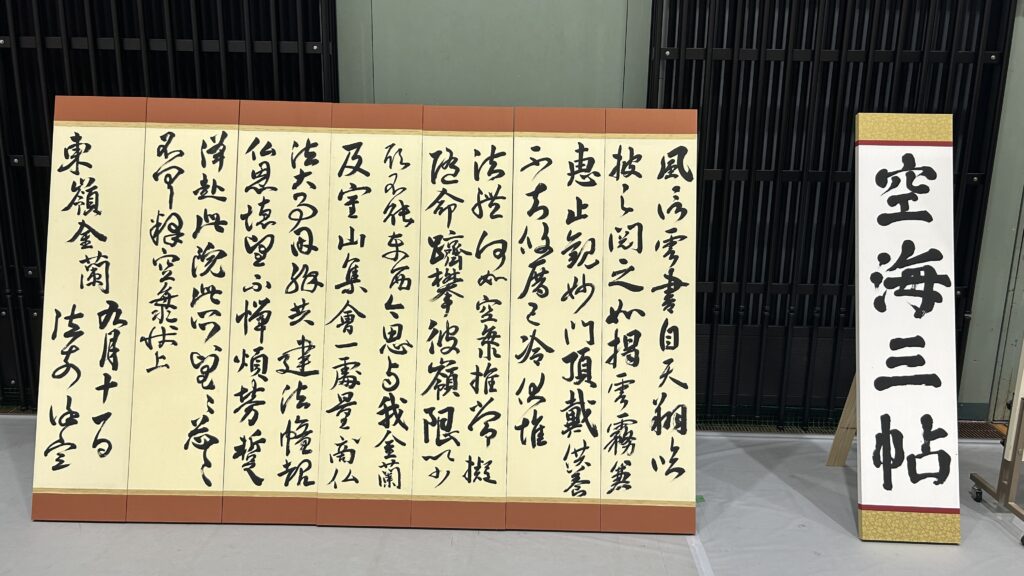 風信雲書自天翔臨
披之閲之如揭雲霧兼
惠止觀妙門頂戴供養
不知攸厝已冷伏惟
法體何如空海推常擬
隨命躋攀彼嶺限以少
願不能東西今思与我金蘭
及室山集會一處量商仏
法大事因緣共建法幢報
仏恩德望不憚煩勞蹔
降赴此院此所望々々忩々
不具釋空海狀上
九月十一日
東嶺金蘭 法前 謹空
空海三帖